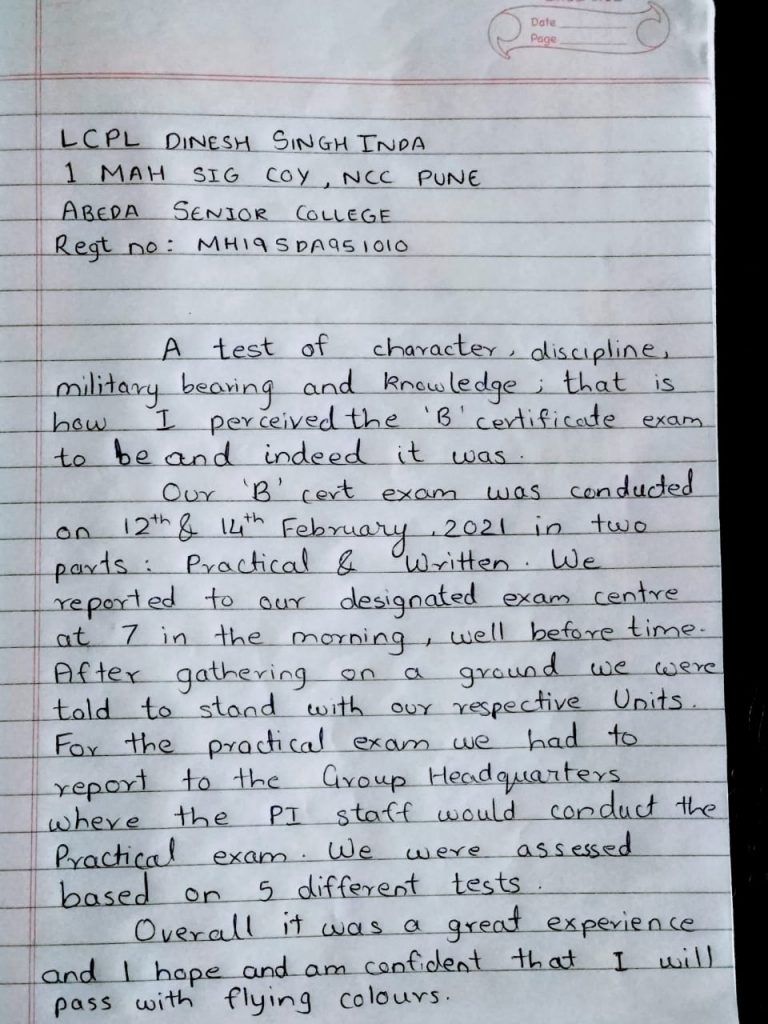 Date
Page
LCPL DINESH SINGH INDA
1 MAH SIG COY, NCC PUNE
ABEDA SENIOR COLLEGE
Regt no: MH19SDA951010
A test of character, discipline,
military bearing and knowledge; that is
how I perceived the 'B' certificate exam
to be and indeed it was.
Our 'B' cert exam was conducted
on 12th & 14th February, 2021 in two
parts: Practical & Written. We
reported to our designated exam centre
at 7 in the morning, well before time.
After gathering on a ground we were
told to stand with our respective Units.
For the practical exam we had to
report to the Group Headquarters
where the PI staff would conduct the
Practical exam. We were assessed
based on 5 different tests.
Overall it was a great experience
and I hope and am confident that I will
pass with flying colours.